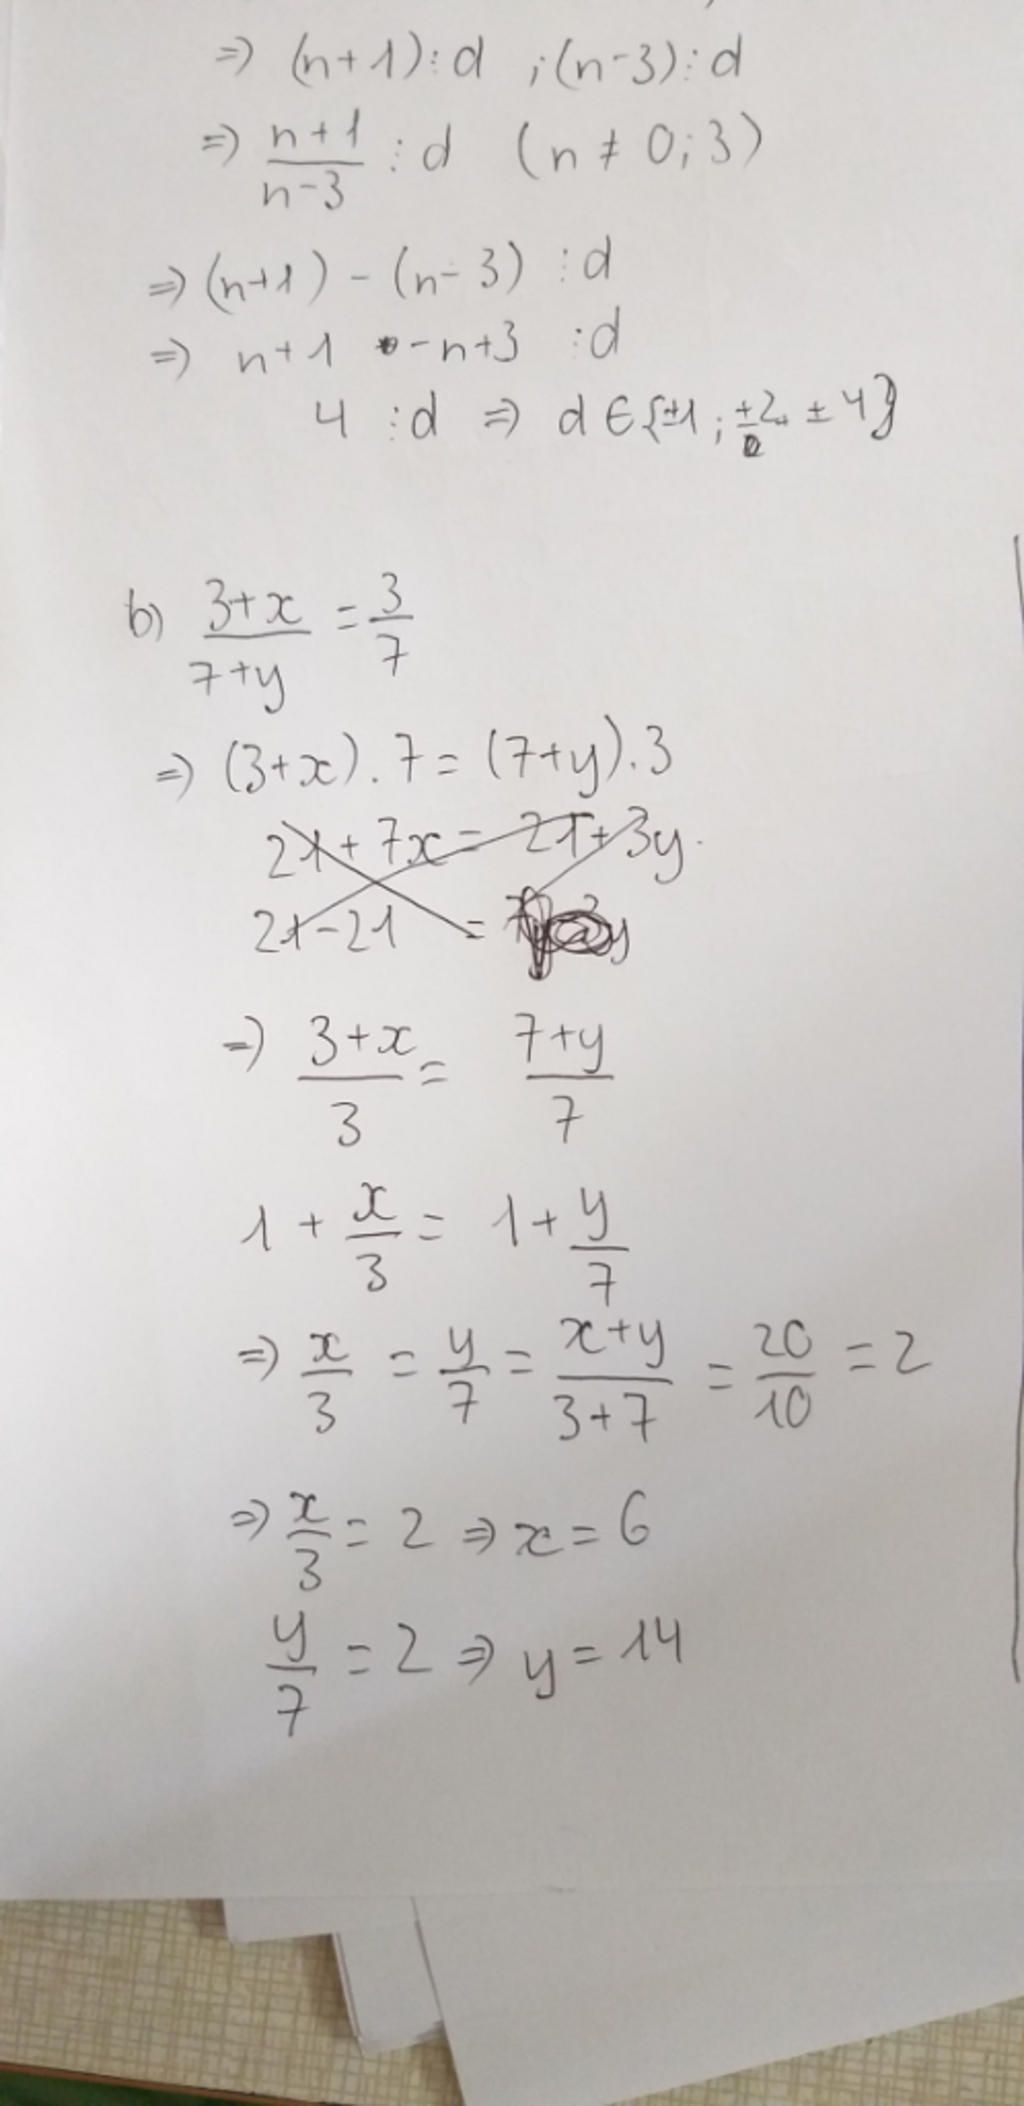 => (n+1)⋮d ; (n-3)⋮d
=> (n+1)/(n-3) ⋮ d (n ≠ 0; 3)
=> (n+1) - (n-3) ⋮ d
=> n+1 -n+3 ⋮ d
4 ⋮ d => d ∈ {±1 ; ±2 ± 4}
b) (3+x)/(7+y) = 3/7
=> (3+x) . 7 = (7+y) . 3
21 + 7x = 21 + 3y.
21 - 21 =
=> (3+x)/3 = (7+y)/7
1 + x/3 = 1 + y/7
=> x/3 = y/7 = (x+y)/(3+7) = 20/10 = 2
=> x/3 = 2 => x = 6
y/7 = 2 => y = 14